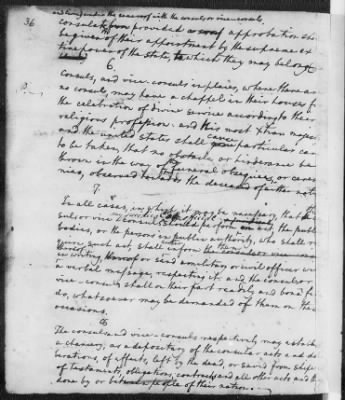 36
and vice consuls
consulate, provided approbation
be given of their appointment by the supreme ex
power of the state, to which they may belong
6.
Consuls, and vice-consuls in places, where there are
no consuls, may have a chappel in their houses for
the celebration of divine service according to their
religious profession. and his most Xtian majesty
and the united states shall cause particular care
to be taken, that no obstacle or hinderance be
thrown in the way of funeral obsequies or cere
monies, observed towards the deceased of either nation
7.
In all cases, in which it may be necessary, that the
consul or vice consul should perform an act, the public
bodies, or the persons in public authority, who shall re
quire such act, shall inform the consul or vice
in writing, or send a military or civil officer with
a verbal message, respecting it. and the consul or
vice-consul shall on their part readily and bona fide
do, whatsoever may be demanded of them on these
occasions.
8
The consuls and vice-consuls respectively may establish
a chancery, as a depositary of the consular acts and de
liberations, of effects, left by the dead, or saved from ship
of testaments, obligations, contracts and all other acts and th
done by or between people of their nation.